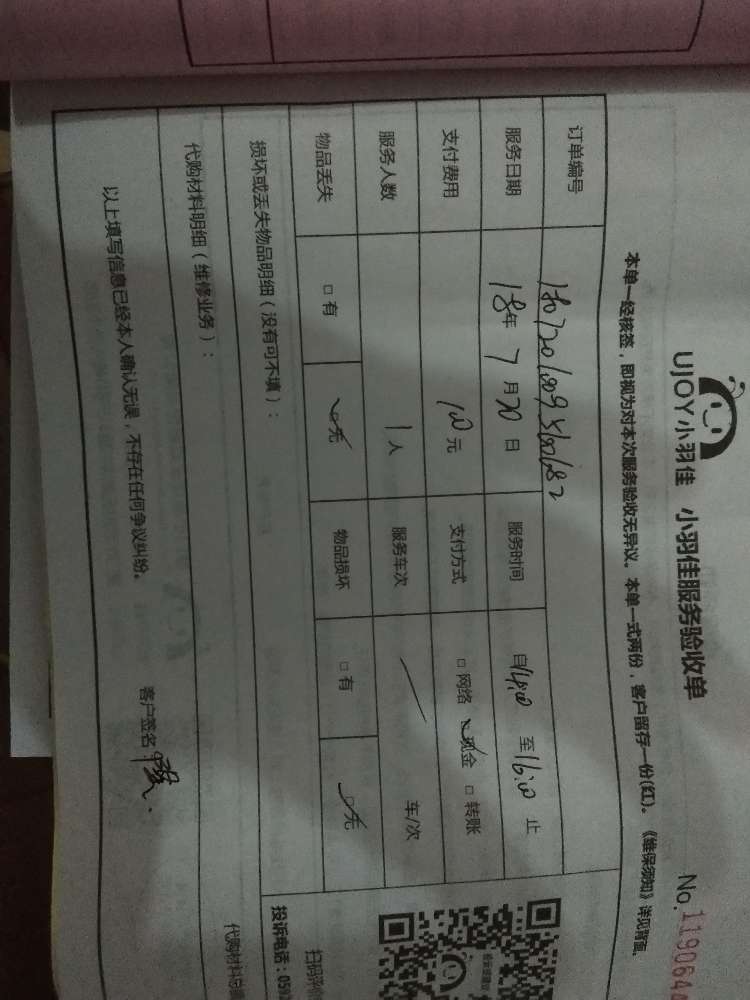 UJOY小羽佳 小羽佳服务验收单
No.119064
本单一经核签，即视为对本次服务验收无异议。本单一式两份，客户留存一份(红)。《维保须知》详见背面。
订单编号
服务日期 18年7月20日 服务时间 自14:00至16:00止
支付费用 100元 支付方式 □网络 ☑现金 □转账
服务人数 1人 服务车次 / 车/次
物品丢失 □有 ☑无 物品损坏 □有 ☑无
损坏或丢失物品明细（没有可不填）：
代购材料明细（维修业务）：
代购材料总
扫码评价
投诉电话：059
以上填写信息已经本人确认无误，不存在任何争议纠纷。
客户签名：